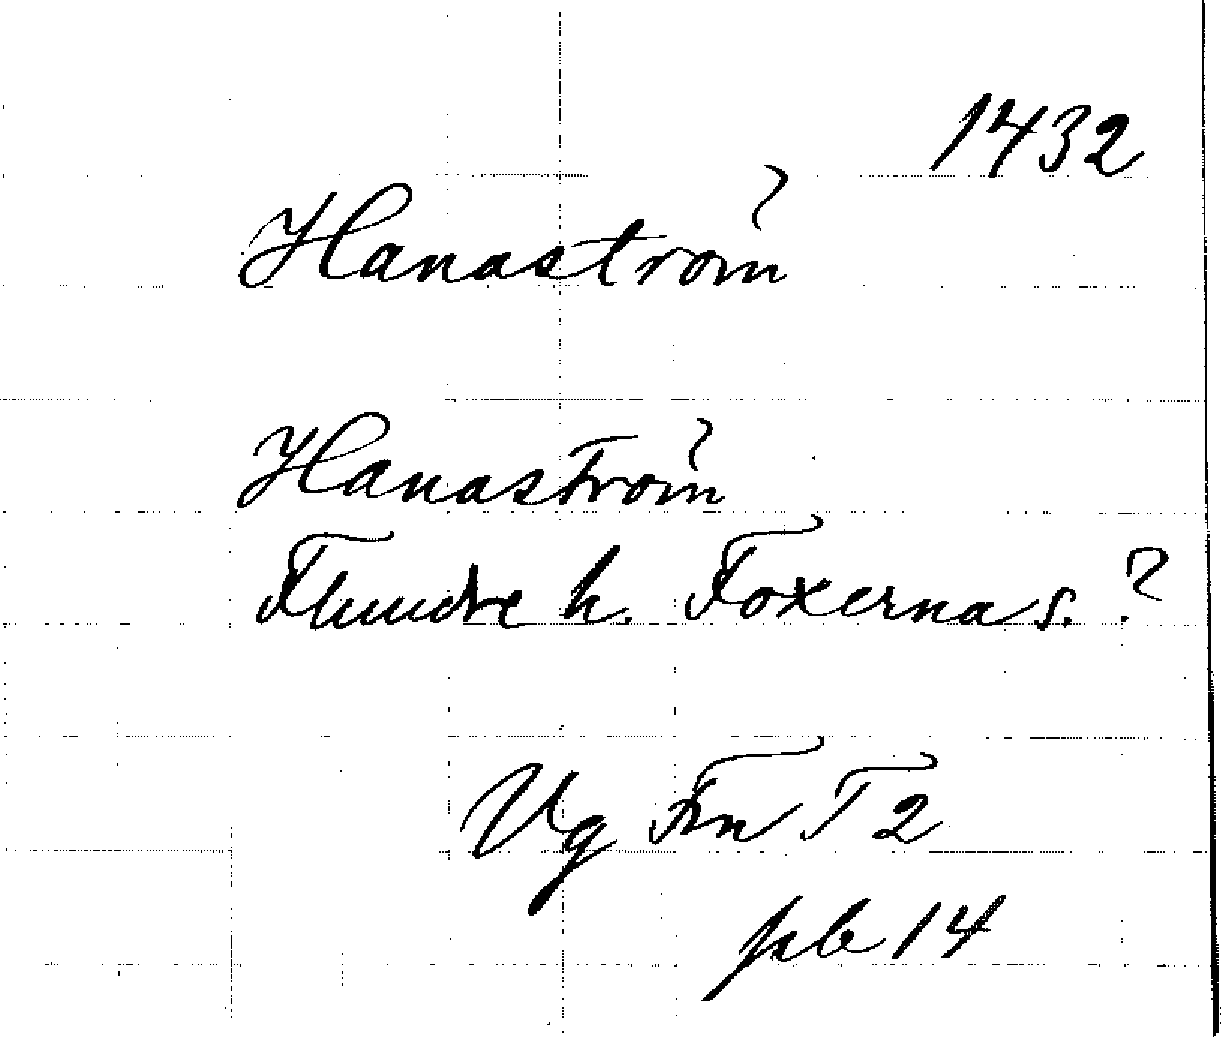 1432
Hanaström
Hanaström
Flundre h. Foxerna s. ?
Vg Frn T 2
pb 14